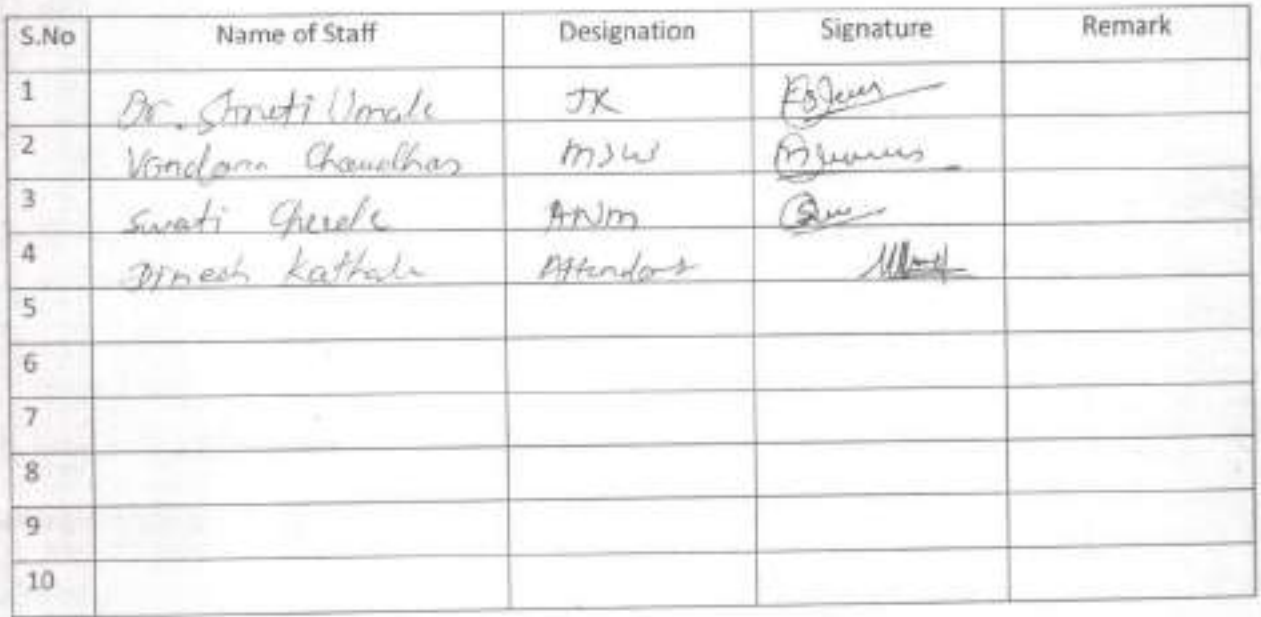 S.No Name of Staff Designation Signature Remark
1 Dr. Shruti Umale JK
2 Vandana Choudhar MSW
3 Swati ANM
4 Dinesh Kathale Attendant
5
6
7
8
9
10